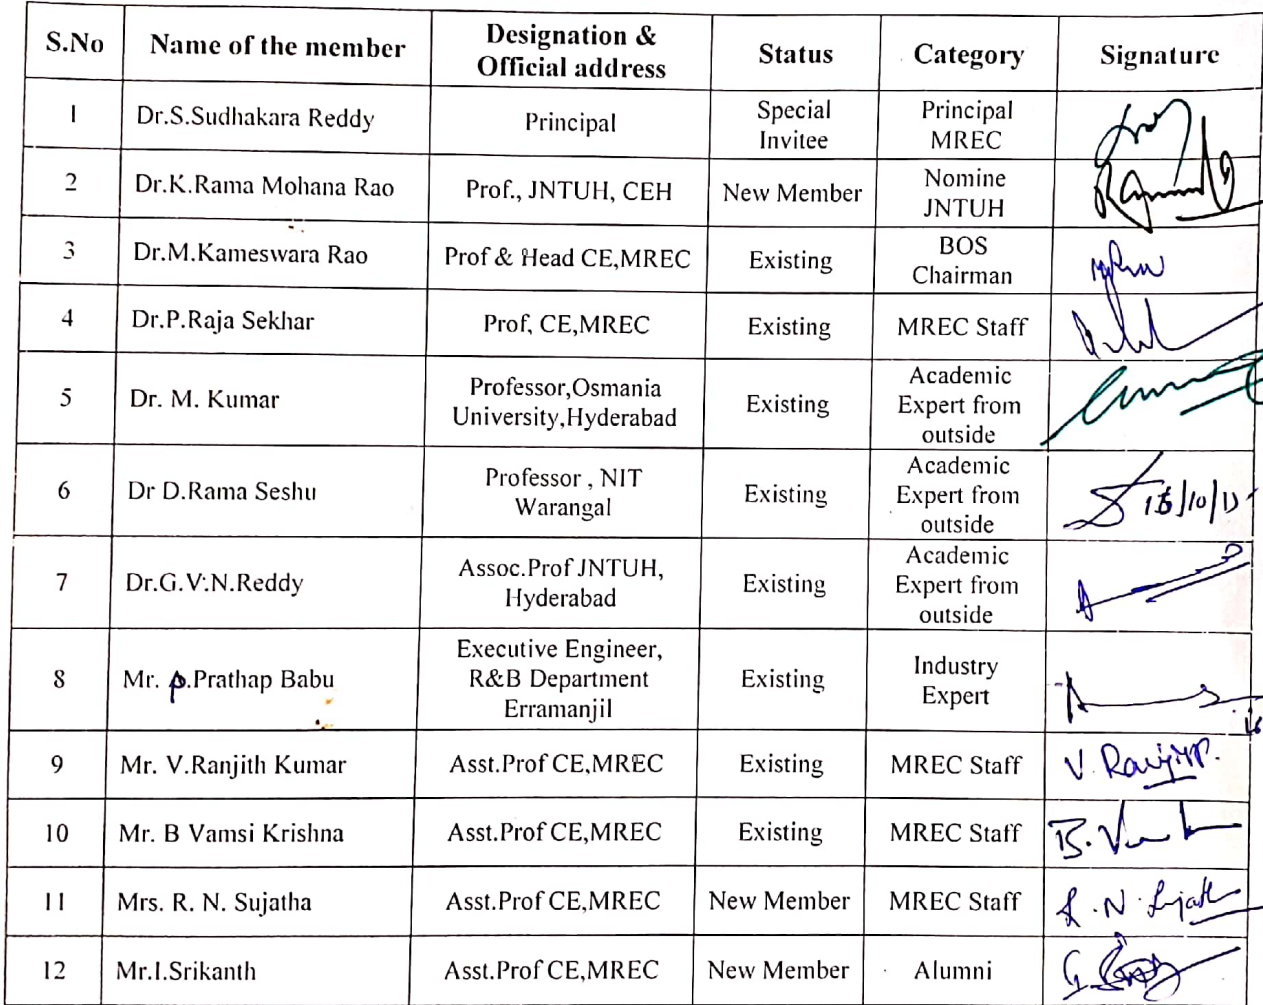 S.No Name of the member Designation & Official address Status Category Signature
1 Dr.S.Sudhakara Reddy Principal Special Invitee Principal MREC
2 Dr.K.Rama Mohana Rao Prof., JNTUH, CEH New Member Nomine JNTUH
3 Dr.M.Kameswara Rao Prof & Head CE,MREC Existing BOS Chairman
4 Dr.P.Raja Sekhar Prof, CE,MREC Existing MREC Staff
5 Dr. M. Kumar Professor,Osmania University,Hyderabad Existing Academic Expert from outside
6 Dr D.Rama Seshu Professor , NIT Warangal Existing Academic Expert from outside
7 Dr.G.V.N.Reddy Assoc.Prof JNTUH, Hyderabad Existing Academic Expert from outside
8 Mr. p.Prathap Babu Executive Engineer, R&B Department Erramanjil Existing Industry Expert
9 Mr. V.Ranjith Kumar Asst.Prof CE,MREC Existing MREC Staff
10 Mr. B Vamsi Krishna Asst.Prof CE,MREC Existing MREC Staff
11 Mrs. R. N. Sujatha Asst.Prof CE,MREC New Member MREC Staff
12 Mr.I.Srikanth Asst.Prof CE,MREC New Member Alumni